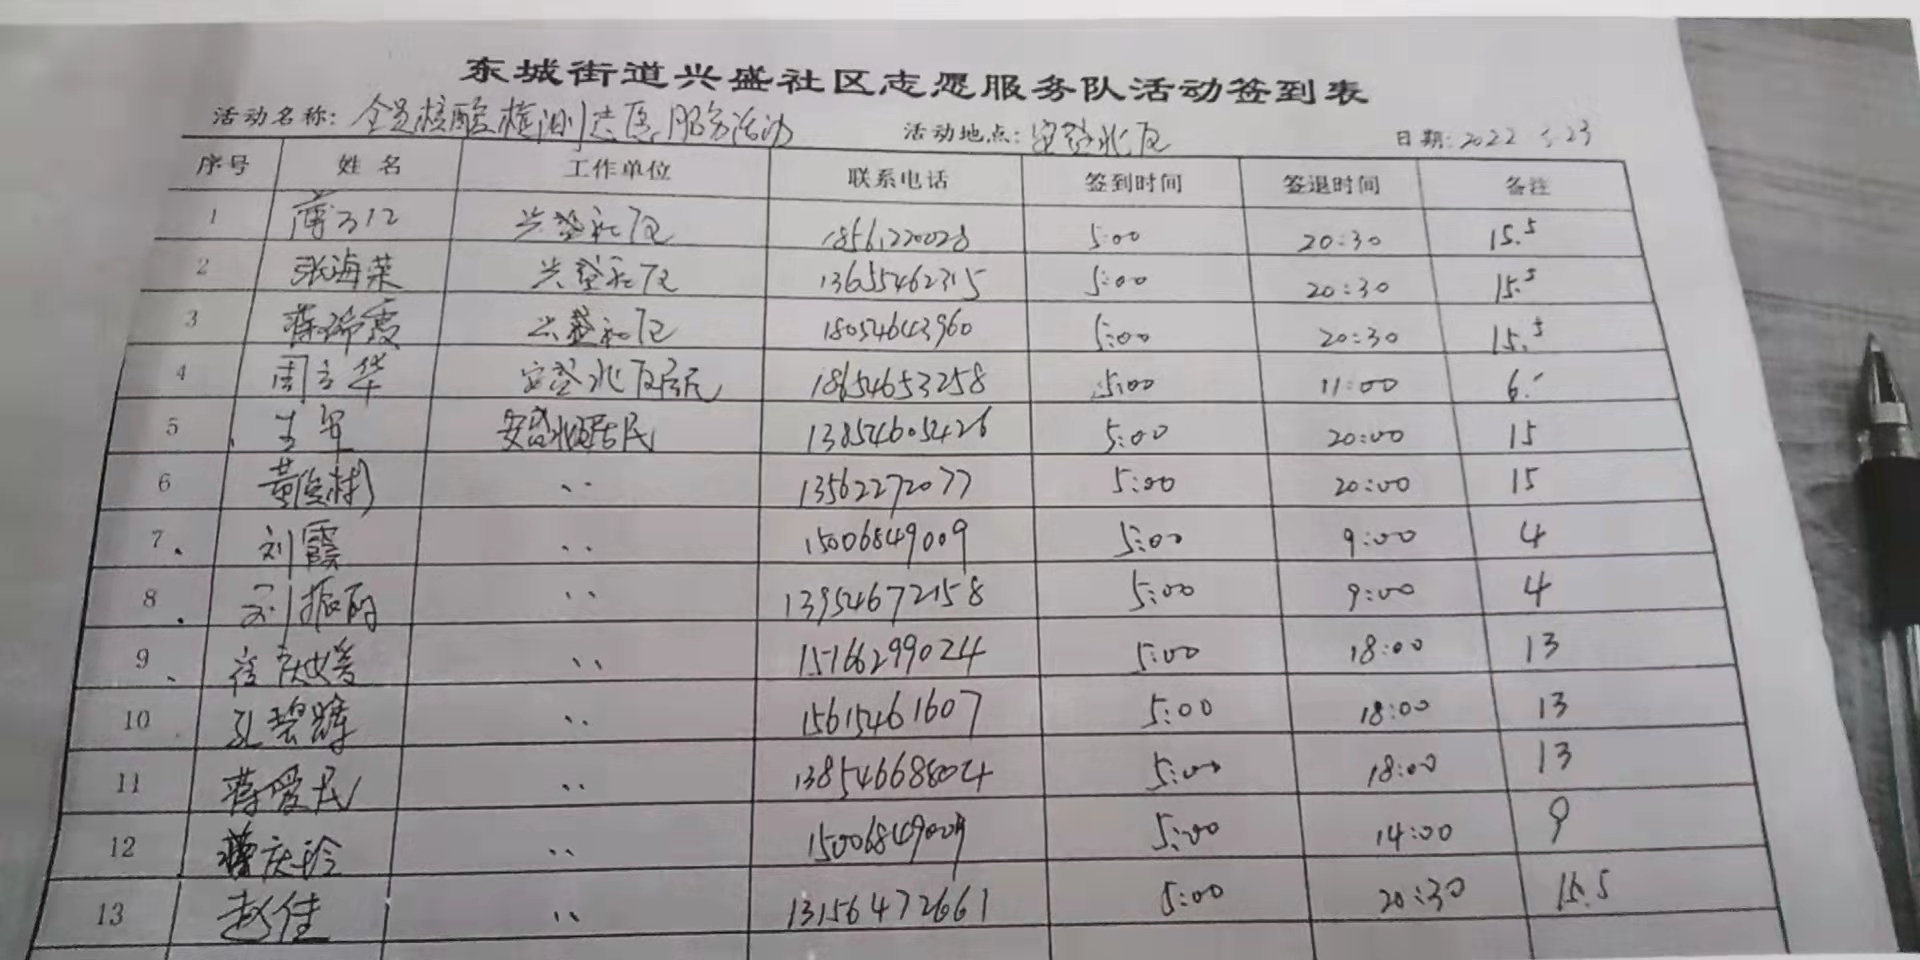 东城街道兴盛社区志愿服务队活动签到表
活动名称: 全员核酸检测志愿服务活动 活动地点: 安盛北区 日期: 2022 23
序号 姓名 工作单位 联系电话 签到时间 签退时间 备注
1 兴盛社区 18561220028 5:00 20:30 15.5
2 张海荣 兴盛社区 13655462315 5:00 20:30 15.5
3 蒋瑞霞 兴盛社区 18054643960 5:00 20:30 15.5
4 周立华 安盛北区居民 18654653258 5:00 11:00 6
5 安盛北区居民 13854605426 5:00 20:00 15
6 黄俊树 〃 13562272077 5:00 20:00 15
7 刘霞 〃 15006849009 5:00 9:00 4
8 刘振 〃 13954672158 5:00 9:00 4
9 〃 15166299024 5:00 18:00 13
10 孔碧辉 〃 15615461607 5:00 18:00 13
11 蒋爱民 〃 13854668804 5:00 18:00 13
12 蒋庆玲 〃 15006849009 5:00 14:00 9
13 赵佳 〃 13156472661 5:00 20:30 15.5